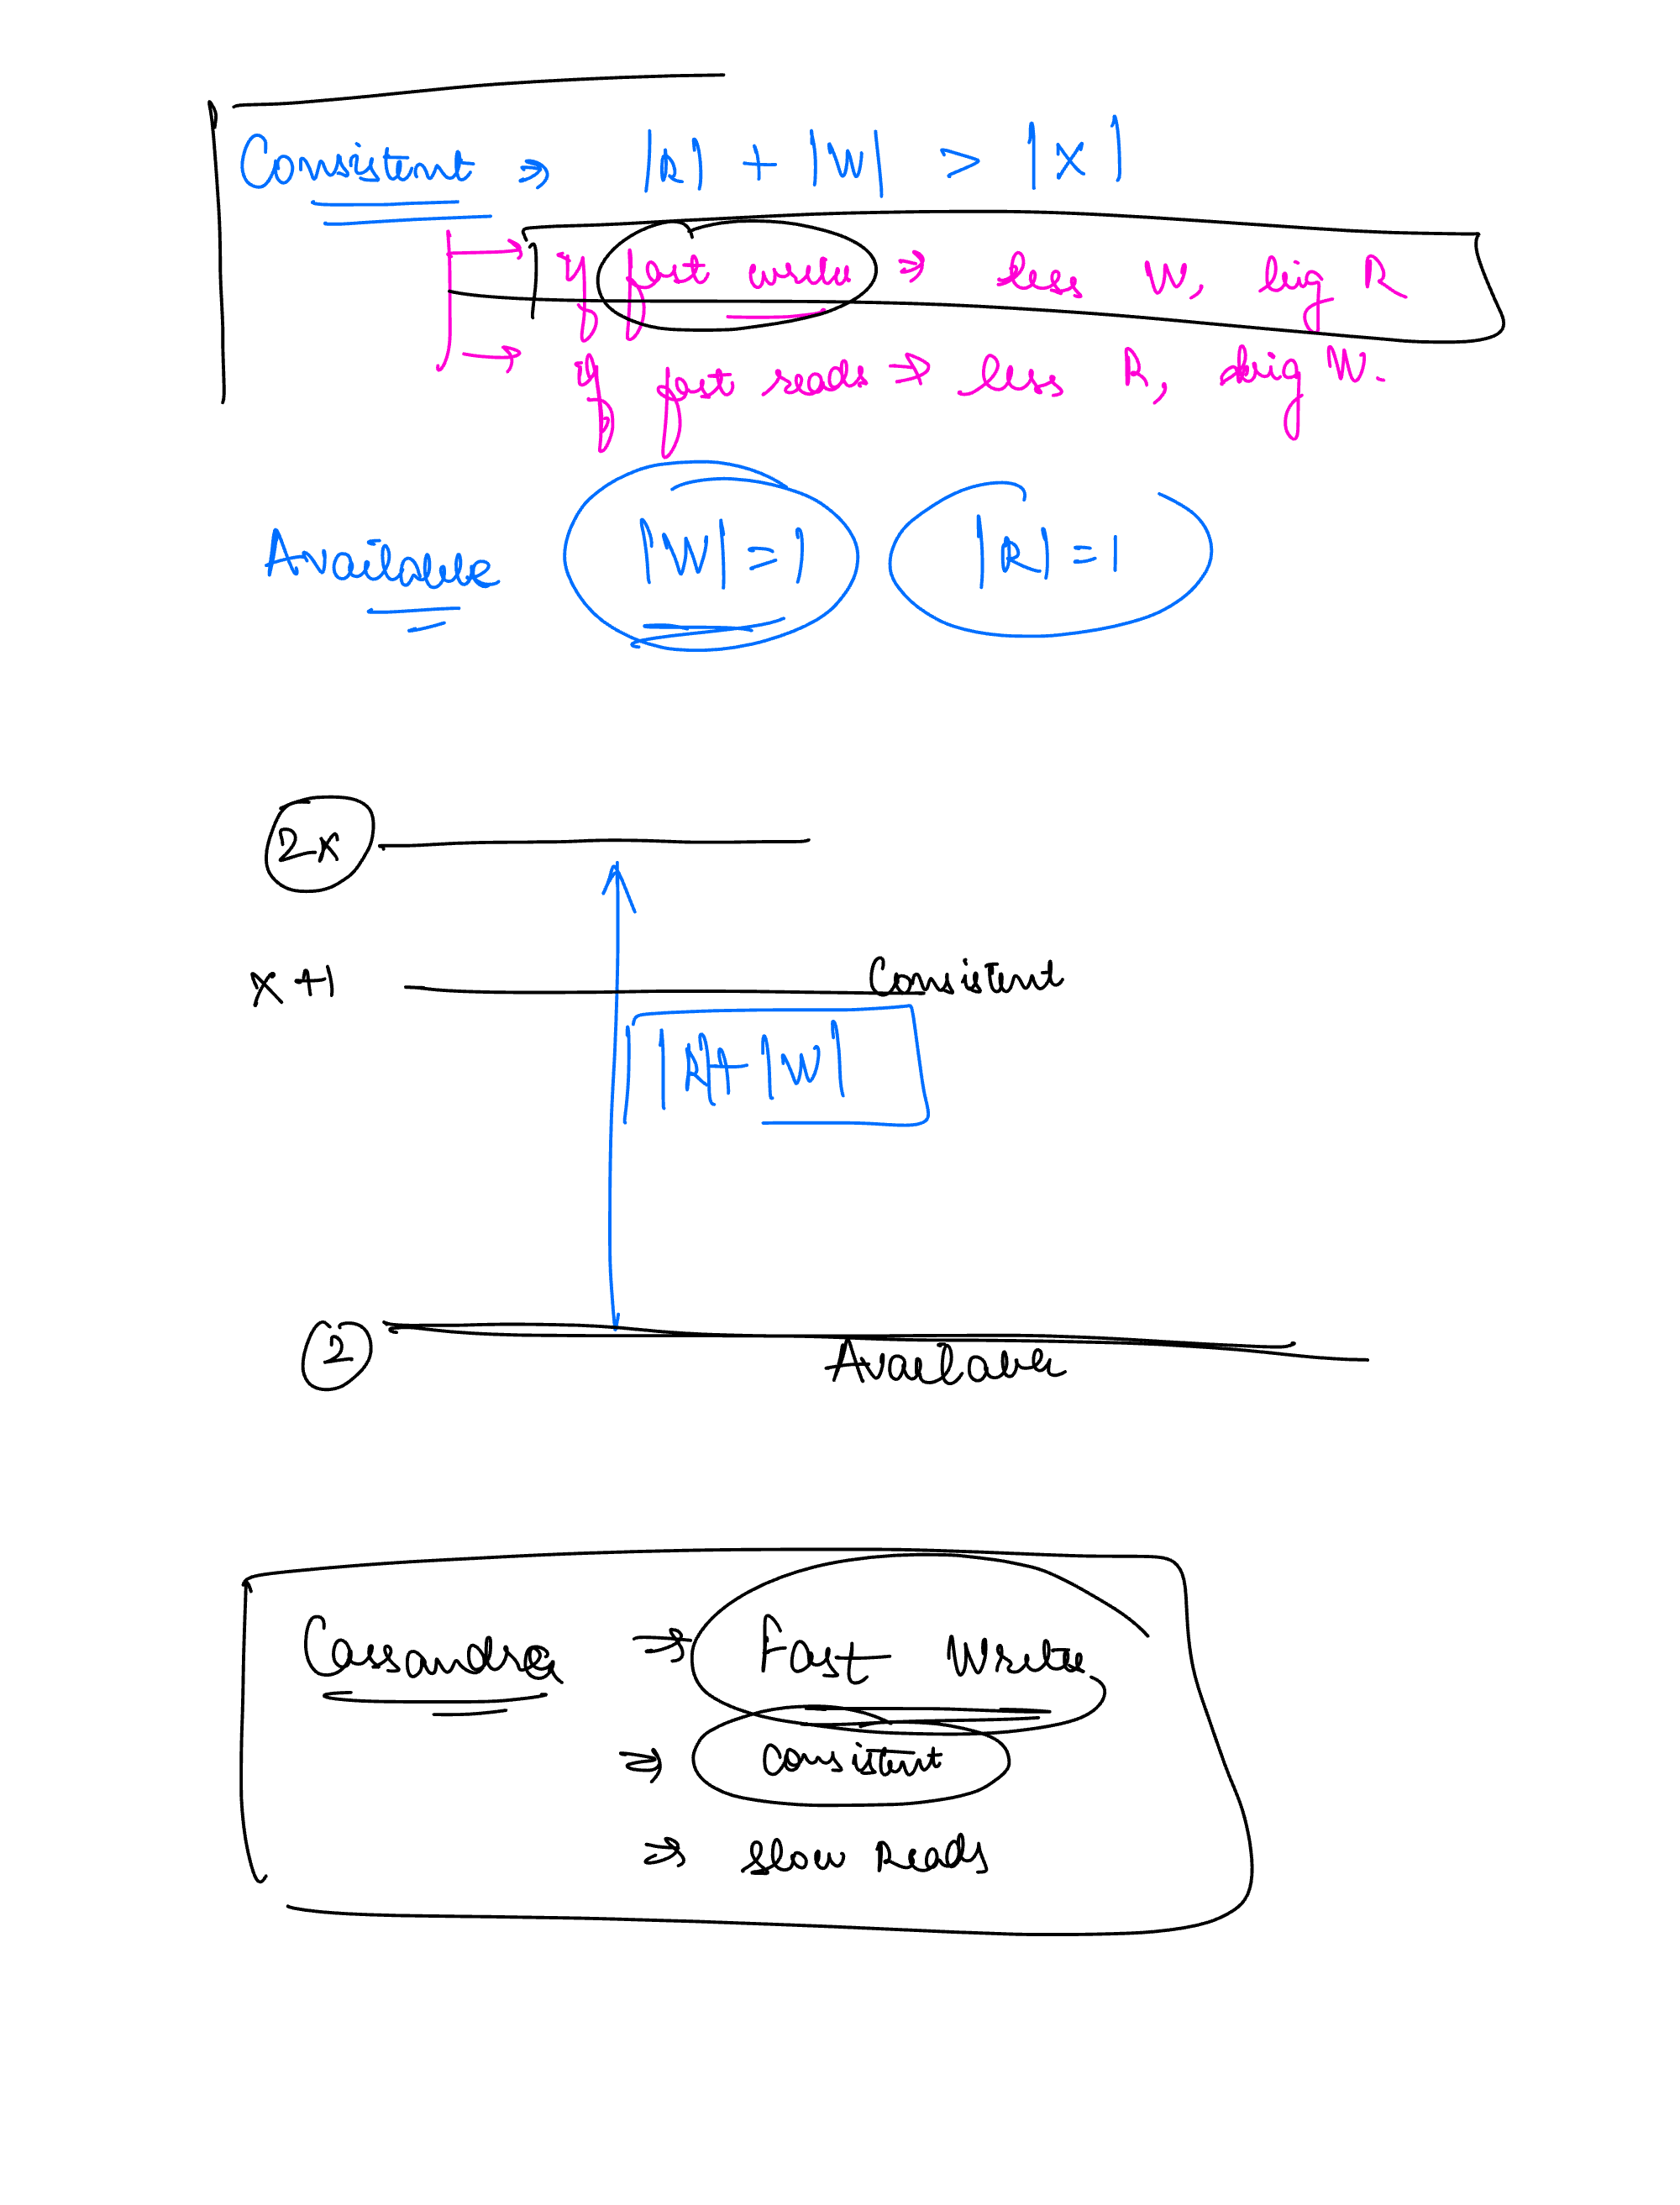 Consistent ⇒ |R| + |W| > |X|
→ if fast write ⇒ less W, big R
→ if fast reads → less R, big W.
Available |W| = 1 |R| = 1
2x
x+1 Consistent
|R|+|W|
2 Available
Cassandra ⇒ Fast Write
⇒ Consistent
⇒ Slow Reads